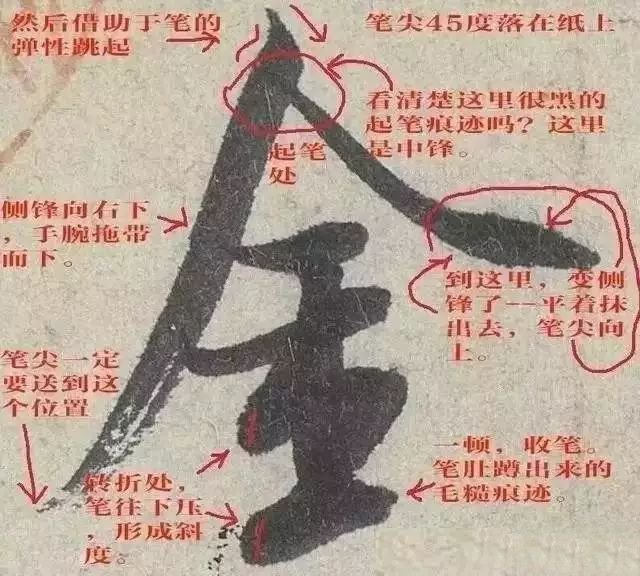 然后借助于笔的
弹性跳起
笔尖45度落在纸上
看清楚这里很黑的
起笔痕迹吗？这里
是中锋。
起笔
处
侧锋向右下
，手腕拖带
而下。
到这里，变侧
锋了--平着抹
出去，笔尖向
上。
笔尖一定
要送到这
个位置
一顿，收笔。
笔肚蹲出来的
毛糙痕迹。
转折处，
笔往下压
，形成斜
度。